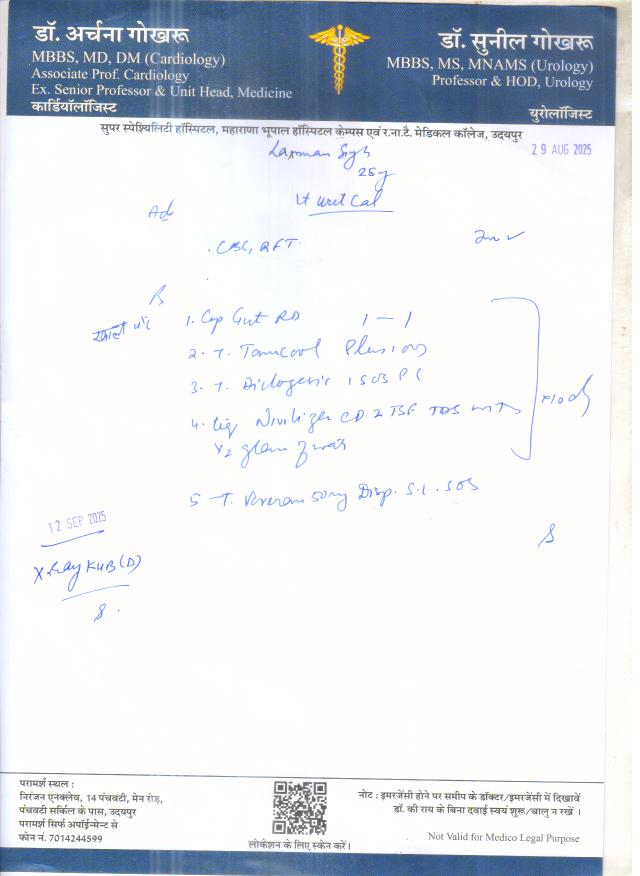 डॉ. अर्चना गोखरू
MBBS, MD, DM (Cardiology)
Associate Prof. Cardiology
Ex. Senior Professor & Unit Head, Medicine
कार्डियॉलॉजिस्ट
डॉ. सुनील गोखरू
MBBS, MS, MNAMS (Urology)
Professor & HOD, Urology
युरोलॉजिस्ट
सुपर स्पेश्यिलिटी हॉस्पिटल, महाराणा भूपाल हॉस्पिटल केम्पस एवं र.ना.टै. मेडिकल कॉलेज, उदयपुर
29 AUG 2025
Laxman
25y
Lt Cal
Ad
CBC, RFT.
1. Cap RD 1 - 1
2. T. Plus
3. T. 1 SOS
4. 2 TSF TDS
glass
5 T. 50mg Disp. SOS
12 SEP 2025
X-Ray KUB (D)
परामर्श स्थल :
निरंजन एनक्लेव, 14 पंचवटी, मेन रोड़,
पंचवटी सर्किल के पास, उदयपुर
परामर्श सिर्फ अपॉईन्मेन्ट से
फोन नं. 7014244599
लोकेशन के लिए स्केन करें।
नोट : इमरजेंसी होने पर समीप के डॉक्टर/इमरजेंसी में दिखावें
डॉ. की राय के बिना दवाई स्वयं शुरू/चालु न रखें ।
Not Valid for Medico Legal Purpose